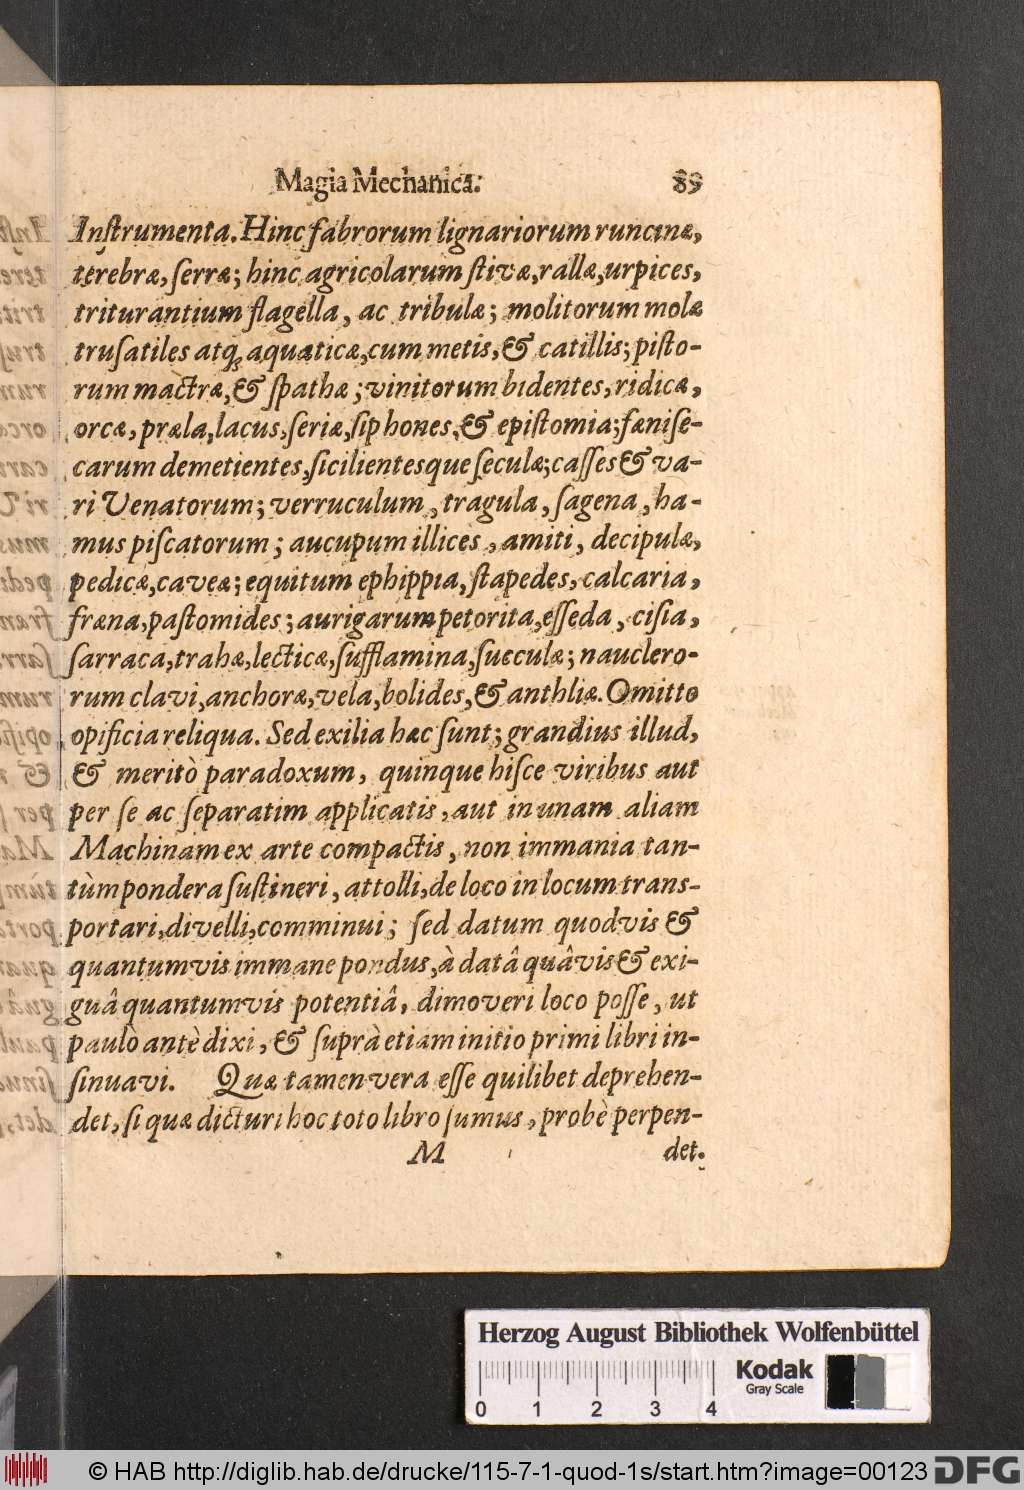 Magia Mechanica. 89
Inſtrumenta. Hinc fabrorum lignariorum runcinæ,
terebræ, ſerræ; hinc agricolarum ſtivæ, rallæ, urpices,
triturantium flagella, ac tribulæ; molitorum molæ
truſatiles atq; aquaticæ, cum metis, & catillis; piſto-
rum mactræ, & ſpathæ; vinitorum bidentes, ridicæ,
orcæ, præla, lacus, ſeriæ, ſiphones, & epiſtomia; fæniſe-
carum demetientes, ſicilientesque ſeculæ; caſſes & va-
ri Venatorum; verruculum, tragula, ſagena, ha-
mus piſcatorum; aucupum illices, amiti, decipulæ,
pedicæ, caveæ; equitum ephippia, ſtapedes, calcaria,
fræna, paſtomides; aurigarum petorita, eſſeda, ciſia,
ſarraca, trahæ, lecticæ, ſufflamina, ſueculæ; nauclero-
rum clavi, anchoræ, vela, bolides, & anthliæ. Omitto
opificia reliqua. Sed exilia hæc ſunt; grandius illud,
& meritò paradoxum, quinque hiſce viribus aut
per ſe ac ſeparatim applicatis, aut in unam aliam
Machinam ex arte compactis, non immania tan-
tùm pondera ſuſtineri, attolli, de loco in locum trans-
portari, divelli, comminui; ſed datum quodvis &
quantumvis immane pondus, à datâ quâvis & exi-
guâ quantumvis potentiâ, dimoveri loco poſſe, ut
paulò antè dixi, & ſuprà etiam initio primi libri in-
ſinuavi. Quæ tamen vera eſſe quilibet deprehen-
det, ſi quæ dicturi hoc toto libro ſumus, probè perpen-
M det.
Herzog August Bibliothek Wolfenbüttel
Kodak
Gray Scale
0 1 2 3 4
© HAB http://diglib.hab.de/drucke/115-7-1-quod-1s/start.htm?image=00123 DFG